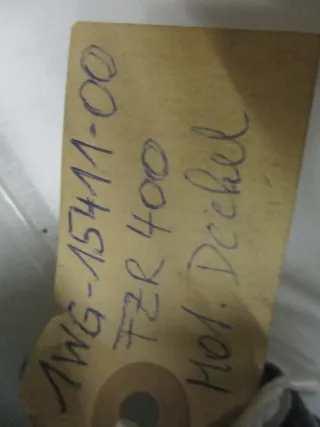 1WG-15411-00
FZR 400
Mot. Deckel